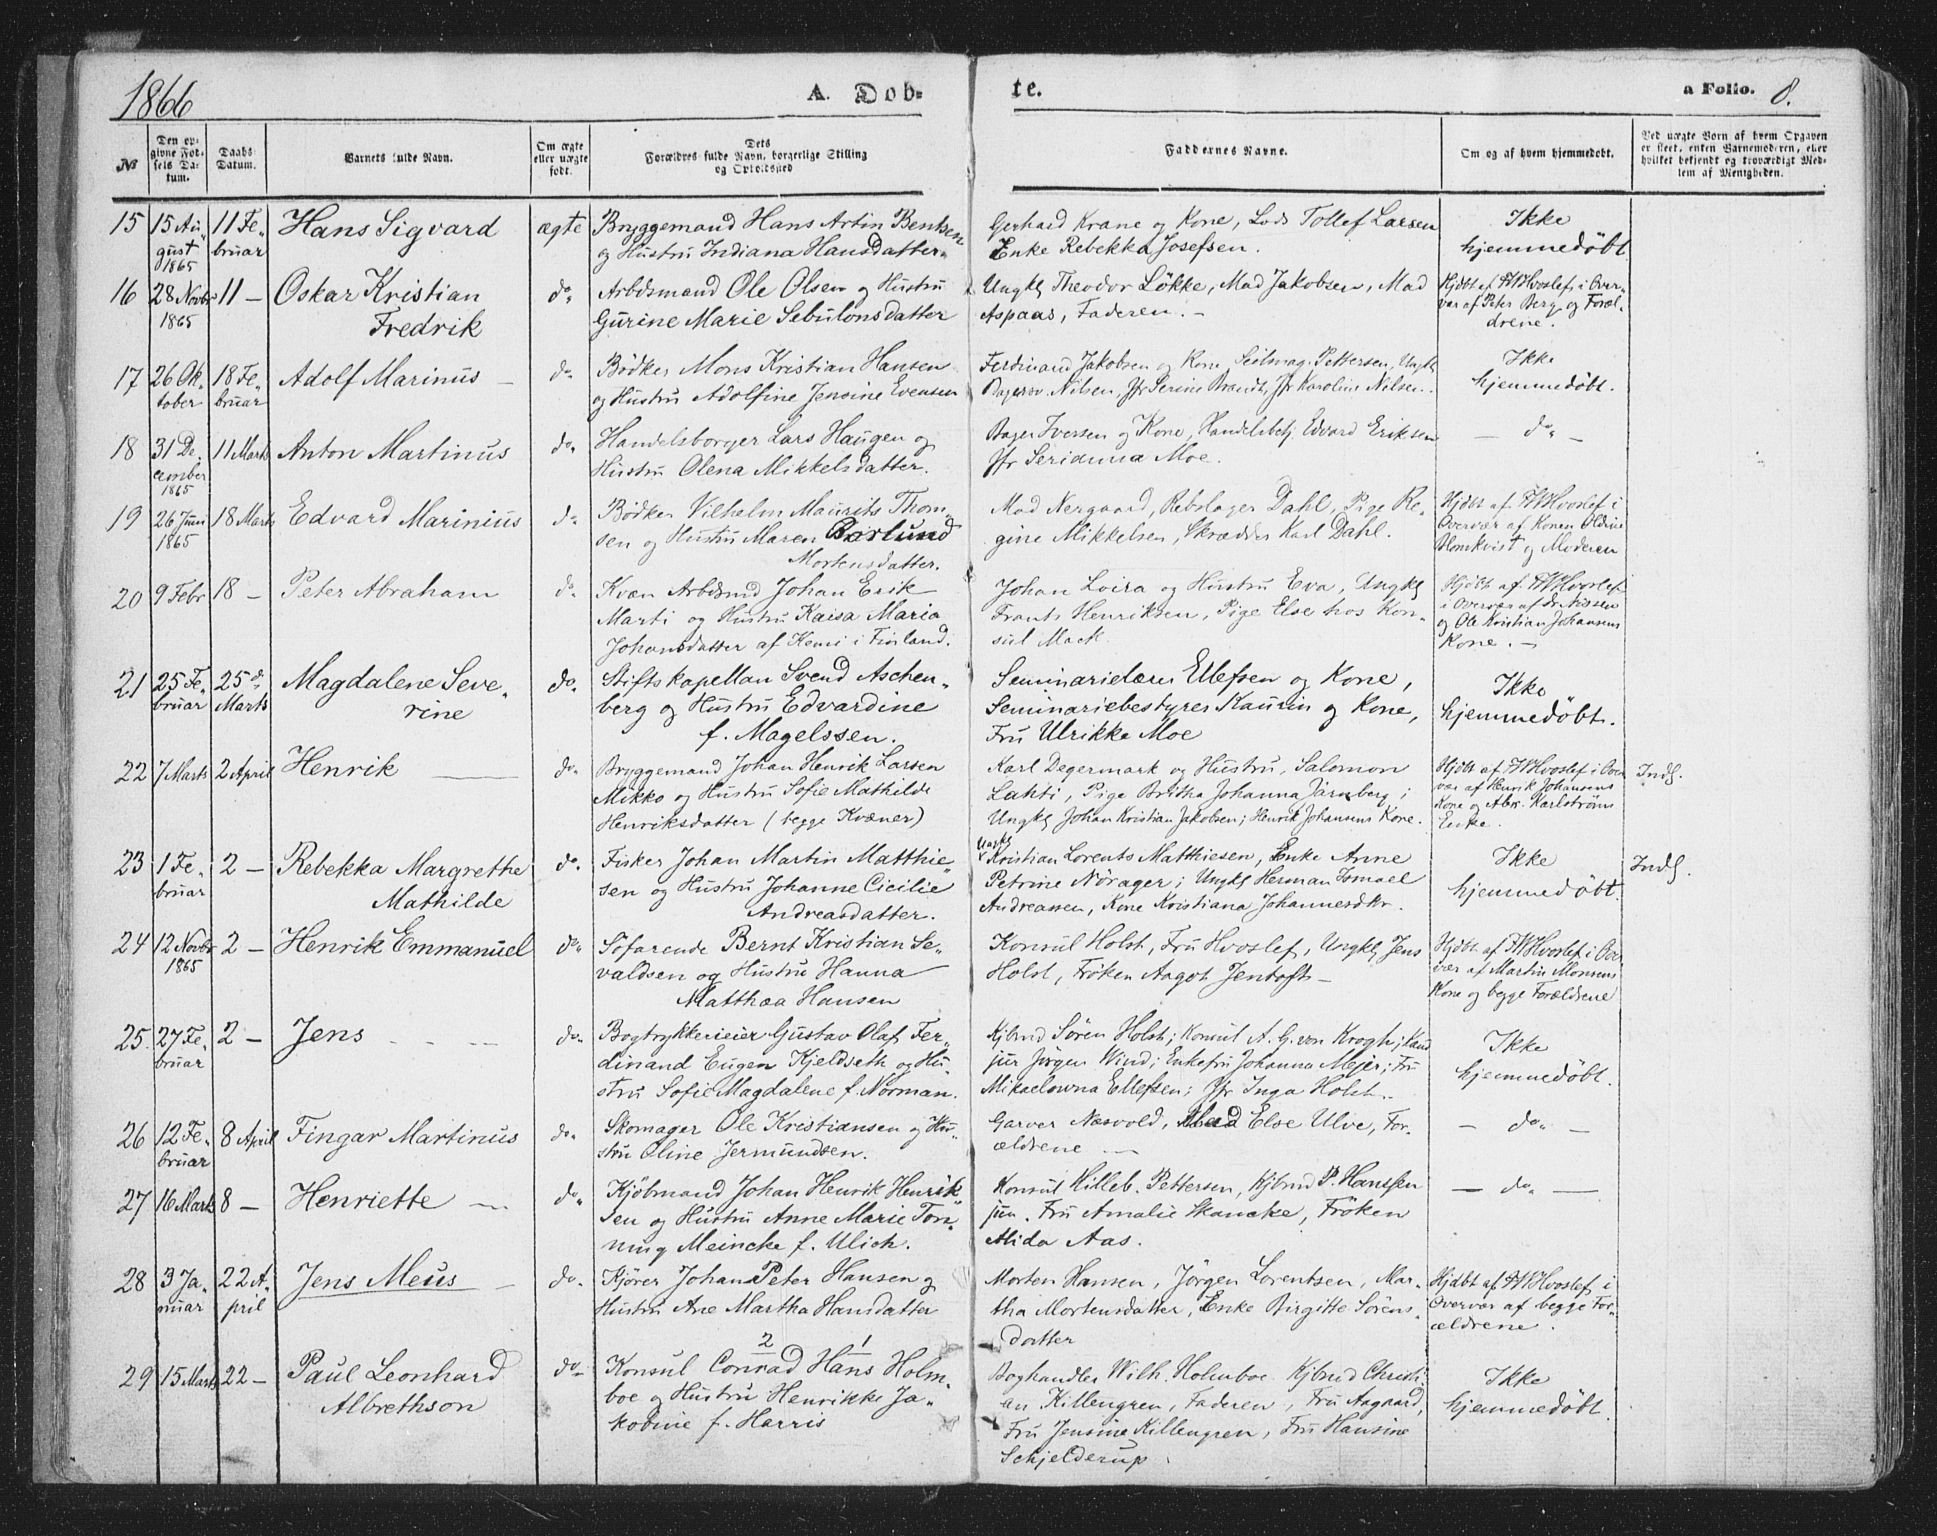 1866
A. Døb-
te.
a Folio. 8.
№
Den opgivne Fødsels Datum.
Daabs Datum.
Barnets fulde Navn.
Om ægte eller uægte født.
Dets Forældres fulde Navn, borgerlige Stilling og Opholdssted
Faddernes Navne.
Om og af hvem hjemmedøbt.
Ved uægte Born af hvem Opgaven er skeet, enten Barnemoderen, eller hvilket bekjendt og troværdigt Medlem af Menigheden.
15 15 August 1865 11 Februar Hans Sigvard ægte
Bryggemand Hans Artin Bentsen
og Hustru Indiana Hansdatter.
Gerhard Krane og Kone, Lods Tollef Larsen
Enke Rebekka Josefsen.
Ikke
hjemmedöbt
16 28 Novbr 1865 11 — Oskar Kristian
Fredrik do.
Arbdsmand Ole Olsen og Hustru
Gurine Marie Sebulonsdatter
Ungkl Theodor Lökke, Mad Jakobsen, Mad
Aspaas, Faderen. —
Hjdbt af FWHvoslef i Over-
vær af Peter Berg og Foræl-
drene.
17 26 Oktober 18 Februar Adolf Marinus — do.
Bödker Mons Kristian Hansen
og Hustru Adolfine Jensine Evensen
Ferdinand Jakobsen og Kone, Seilmag. Pettersen, Ungkl
Bagersv. Nilsen, Jfr Serine Brandt, Jfr Karoline Nilsen.
Ikke
hjemmedöbt.
18 31 December 1865 11 Marts Anton Martinus do.
Handelsborger Lars Haugen og
Hustru Olena Mikkelsdatter.
Bager Iversen og Kone, Handelsbetj. Edvard Eriksen
Jfr Seridunna Moe.
— do. —
19 26 Juni 1865 18 Marts Edvard Marinius do.
Bödker Vilhelm Maurits Thom-
sen og Hustru Maren Barlund
Mortensdatter.
Mad Nergaard, Rebslager Dahl, Pige Re-
gine Mikkelsen, Skrædder Karl Dahl.
Hjdbt af FWHvoslef i
Overvær af Konen Oldine
Blomkvist og Moderen
20 9 Febr 18 — Peter Abraham do.
Kvæn Arbdsmd Johan Erik
Marti og Hustru Kaisa Maria
Johansdatter af Kemi i Finland.
Johan Loira og Hustru Eva, Ungkl
Frants Henriksen, Pige Else hos Kon-
sul Mack.
Hjdbt af FWHvoslef
i Overvær af Dr Nissen
og Ole Kristian Johansens
Kone. —
21 25 Februar 25 d. Marts Magdalene Seve-
rine do.
Stiftskapellan Svend Aschen-
berg og Hustru Edvardine
f. Magelssen.
Seminarielærer Ellefsen og Kone,
Seminariebestyrer Kaurin og Kone,
Fru Ulrikke Moe
Ikke
hjemmedöbt.
22 7 Marts 2 April Henrik — do.
Bryggemand Johan Henrik Larsen
Mikko og Hustru Sofie Mathilde
Henriksdatter (begge Kvæner)
Karl Degermark og Hustru, Salomon
Lahti, Pige Britha Johanna Järnberg;
Ungkl Johan Kristian Jakobsen; Henrik Johansens Kone.
Hjdbt af FWHvoslef i Over-
vær af Henrik Johansens
Kone og Abr. Karlströms
Enke.
Indf.
23 1 Februar 2 — Rebekka Margrethe
Mathilde do.
Fisker Johan Martin Matthie-
sen og Hustru Johanne Cicilie
Andreasdatter.
Ungkl Kristian Lorents Matthiesen, Enke Anne
Petrine Nörager; Ungkl Herman Ismael
Andreassen, Kone Kristiana Johannesdtr.
Ikke
hjemmedöbt.
Indf.
24 12 Novbr 1865 2 — Henrik Emmanuel do.
Söfarende Bernt Kristian Se-
valdsen og Hustru Hanna
Matthæa Hansen
Konsul Holst, Fru Hvoslef, Ungkl Jens
Holst, Fröken Aagot Jentoft —
Hjdbt af FWHvoslef i Over
vær af Martin Monsens
Kone og begge Forældrene
25. 27 Februar 2 — Jens — do.
Bogtrykkerieier Gustav Olaf Fer-
dinand Eugen Kjeldseth og Hu-
stru Sofie Magdalene f. Norman.
Kjbmd Sören Holst; Konsul A. G. von Krogh; Kand
jur Jörgen Wind; Enkefru Johanna Mejer; Fru
Mikaelowna Ellefsen; Jfr Inga Holst.
Ikke
hjemmedöbt.
26 12 Februar 8 April Fingar Martinus do.
Skomager Ole Kristiansen og Hu-
stru Oline Jermundsen.
Garver Næsvold, Mad Else Ulve, For-
ældrene —
— do. —
27 16 Marts 8 — Henriette — do.
Kjöbmand Johan Henrik Henrik-
sen og Hustru Anne Marie Torn-
ning Meincke f. Ulich.
Konsul Killeb. Pettersen, Kjbmd P. Hanssen
jun. Fru Amalie Skancke, Fröken
Alida Aas.
— do. —
28 3 Januar 22 April Jens Meus — do.
Kjörer Johan Peter Hansen og
Hustru Ane Martha Hansdatter
Morten Hansen, Jörgen Lorentsen, Mar-
tha Mortensdatter, Enke Birgitte Sörens-
datter
Hjdbt af FWHvoslef i
Overvær af begge For-
ældrene.
29 15 Marts 22 — Paul Leonhard
Albrethson do.
2 1
Konsul Conrad Hans Holm-
boe og Hustru Henrikke Ja-
kobine f. Harris
Boghandler Wilh. Holmboe. Kjbmd Christi-
an Killengren, Faderen, Fru Aagaard,
Fru Jensine Killengren, Fru Hansine
Schjelderup.
Ikke
hjemmedöbt.